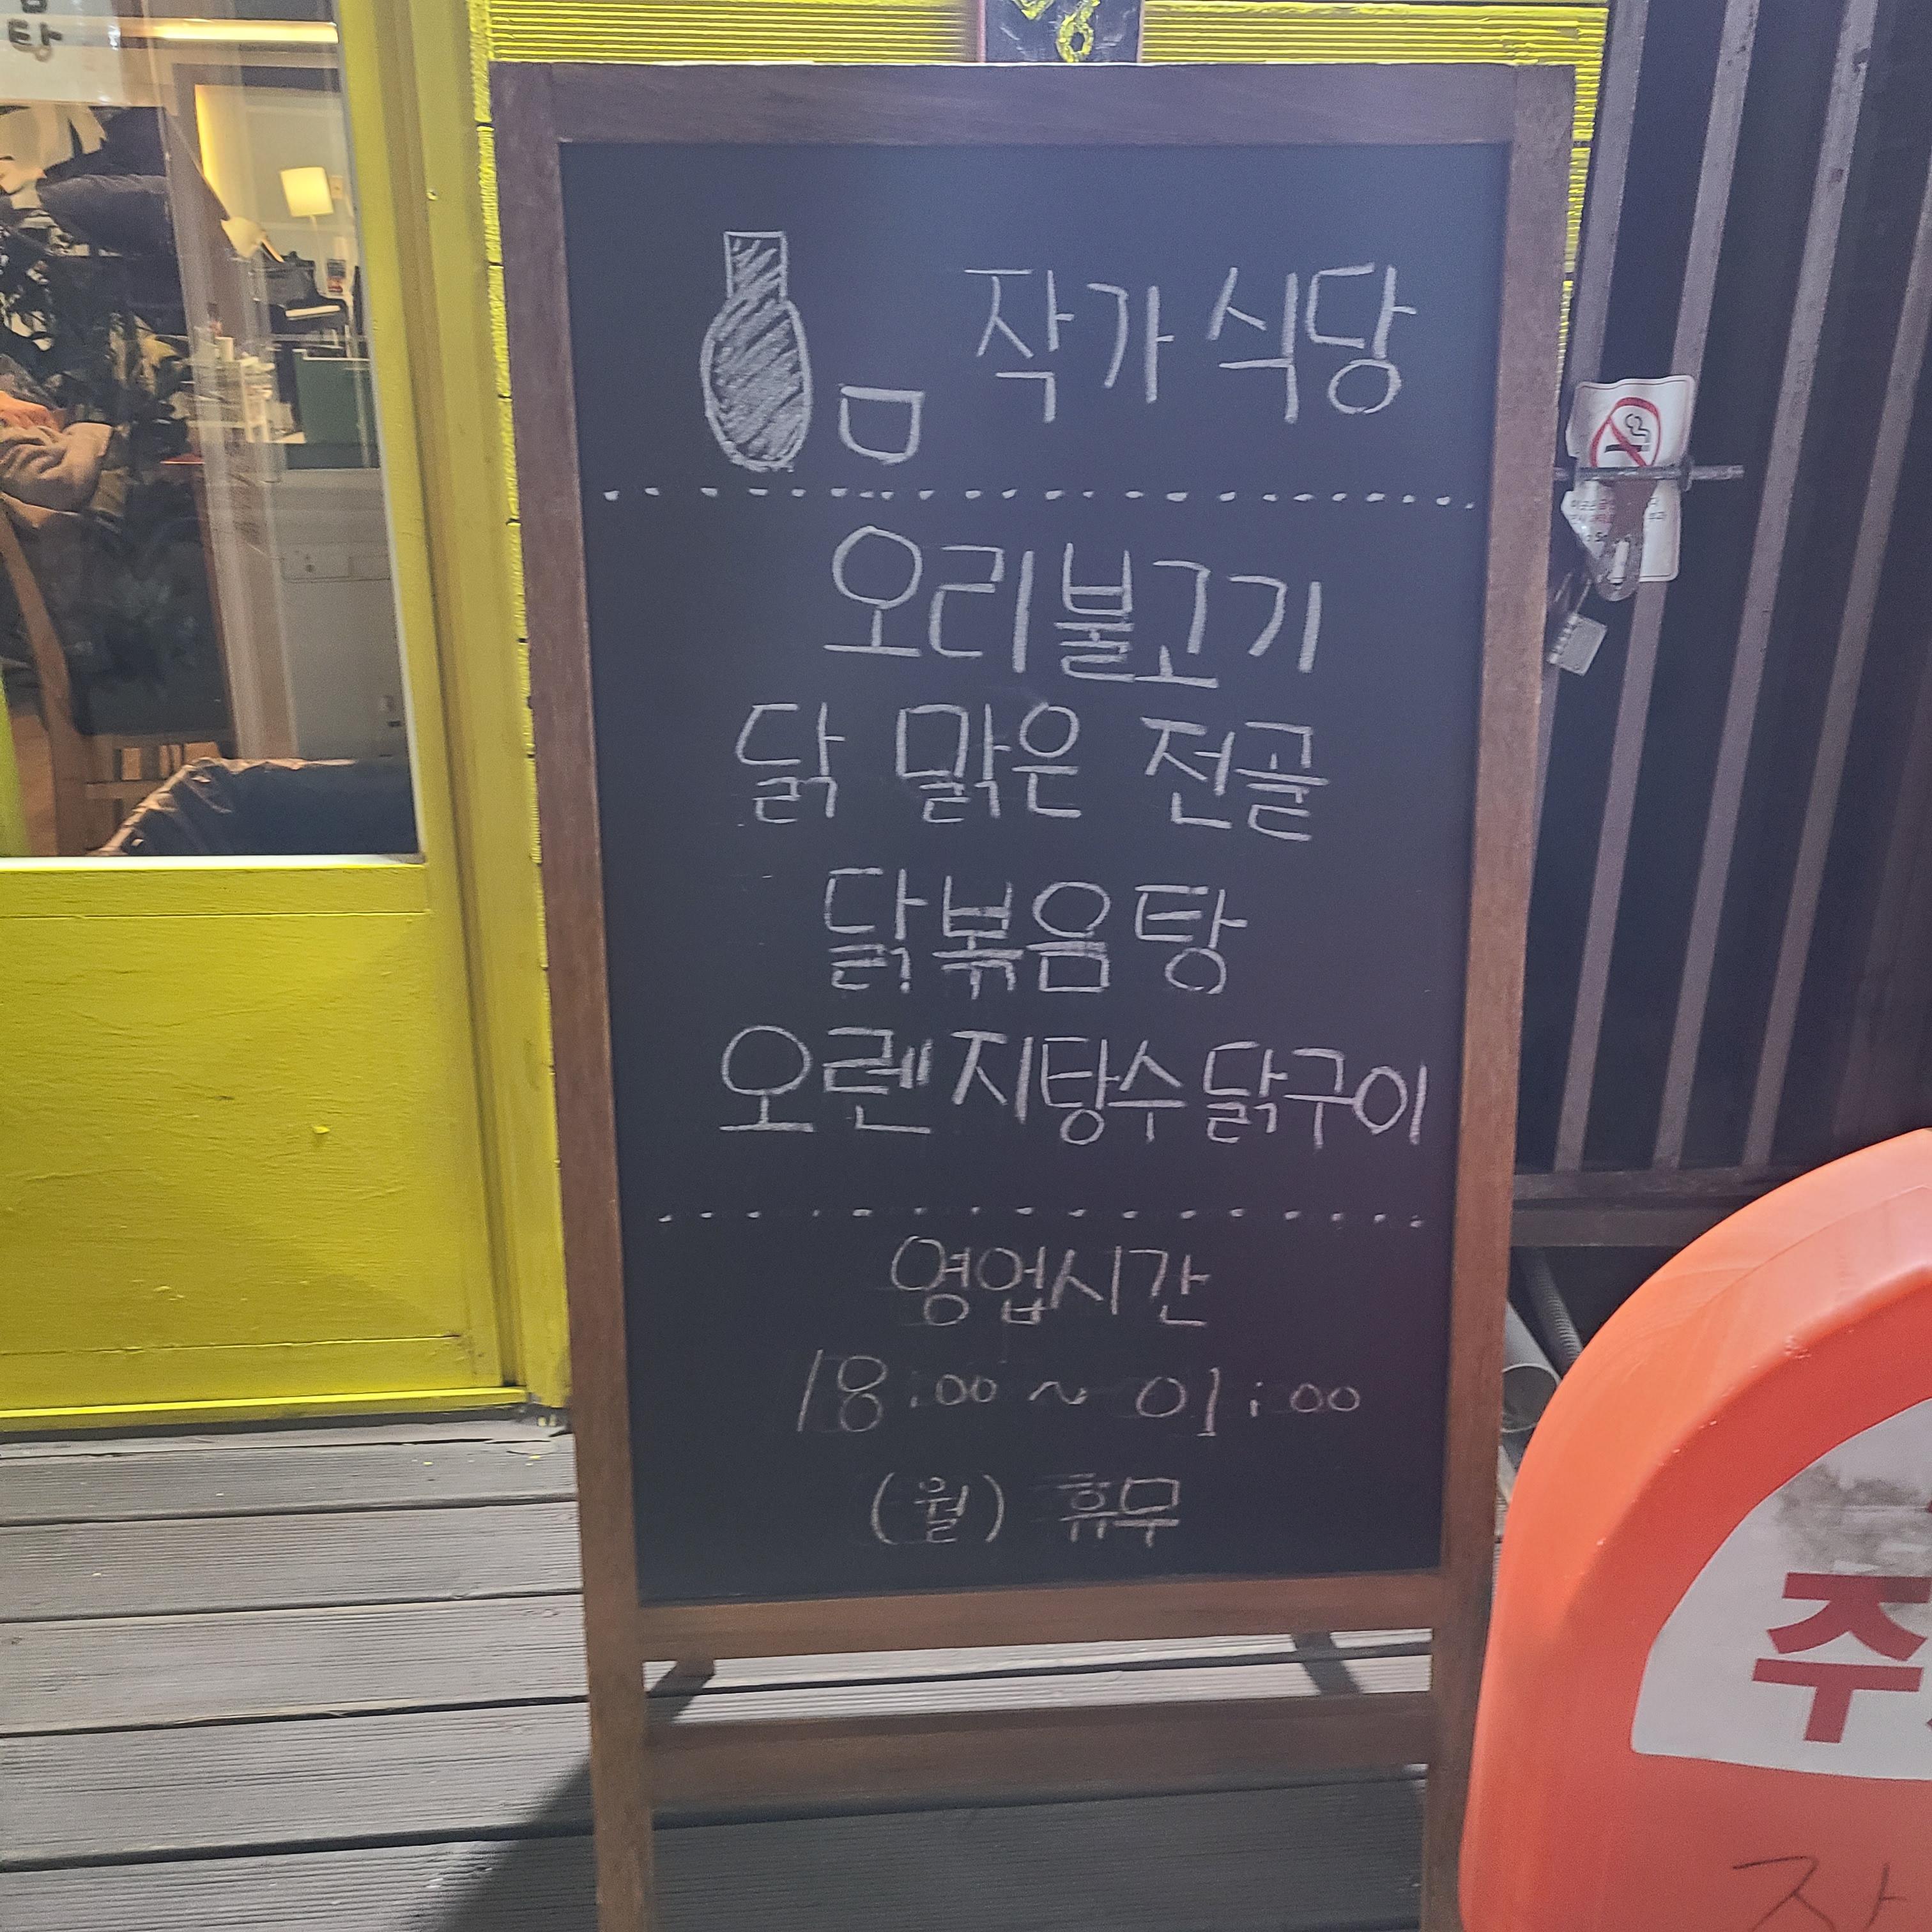 탕
6
작가식당
오리불고기
닭 맑은 전골
닭볶음탕
오렌지탕수닭구이
영업시간
18:00 ~ 01:00
(월) 휴무
주